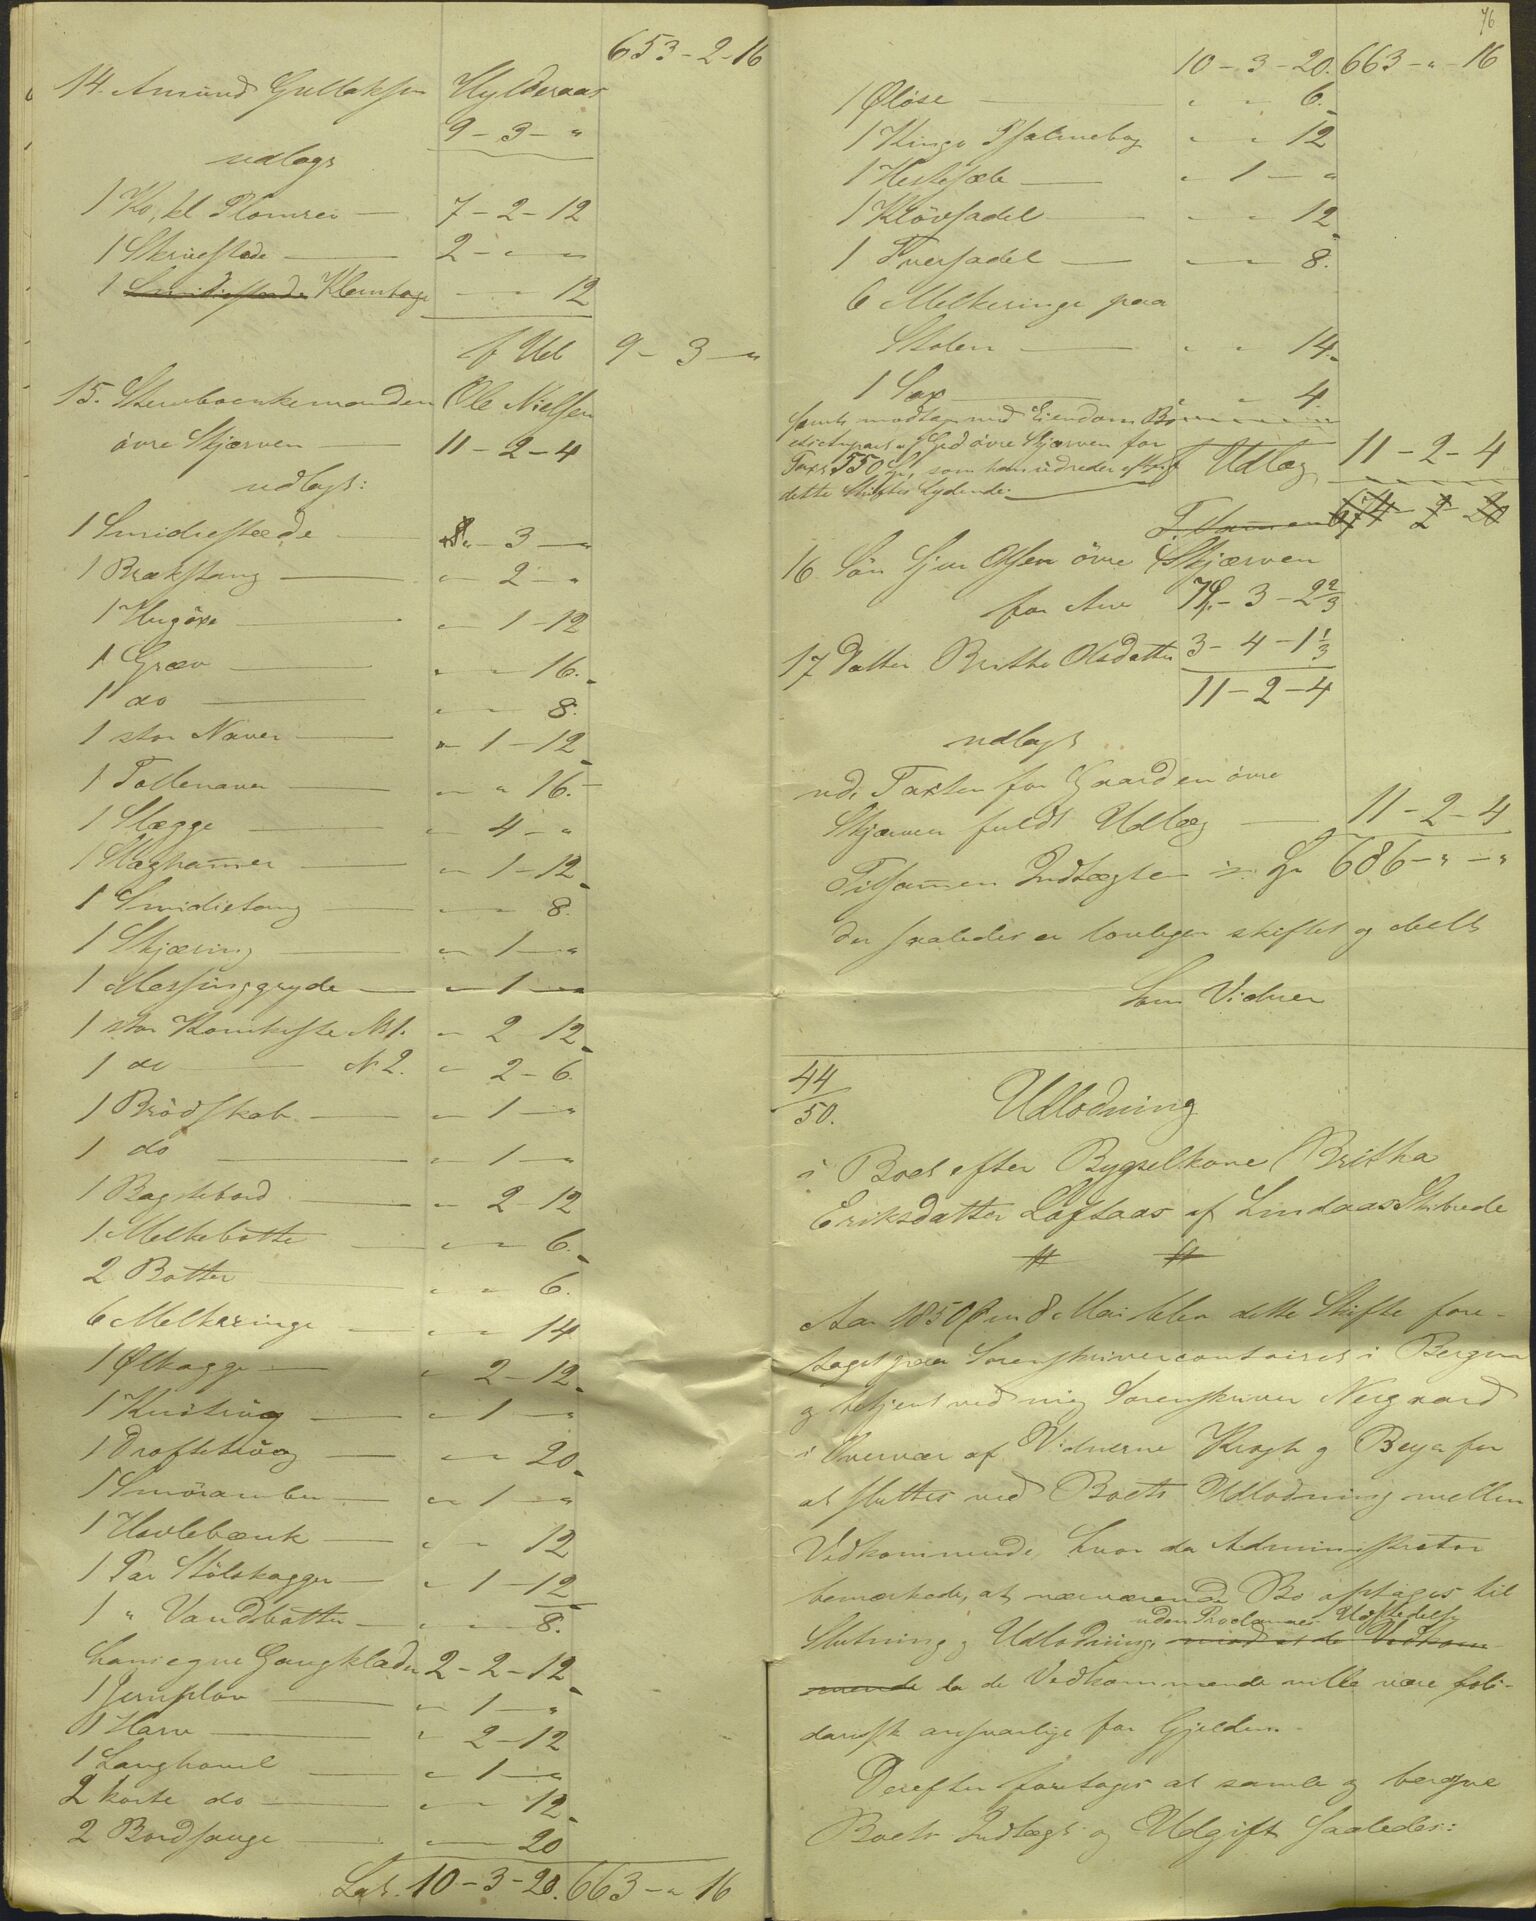 653 - 2 - 16
14. Amund Gullaksen Hylderaas
9 - 3 - "
udlagt
1 Ko, kl Plomrei — 7 - 2 - 12
1 Skruestæde — 2 - " - "
1 Smidiestæde Klemtage " - " 12
f Udl 9 - 3 - "
15. Sterboenkemanden Ole Nielsen
övre Skjærven — 11 - 2 - 4
udlagt:
1 Smidiestæde — " - 3 - "
1 Brækstang — " - 2 - "
1 Hugöxe — " - 1 - 12
1 Græv — " - " 16.
1 do — " - " 8.
1 stor Naver — " - 1 - 12
1 Tollenaver — " - " 16.
1 Slægge — " - 4 - "
1 Slæghammer — " - 1 - 12
1 Smidietang — " - " 8.
1 Skjæring — " - 1 - "
1 Messinggryde — " - 1 - "
1 stor Kornkiste N 1. " - 2 - 12
1 do — N 2. " - 2 - 6.
1 Brödskab — " - 1 - "
1 do — " - 1 - "
1 Bagstebord — " - 2 - 12
1 Melkebötte — " - " 6.
2 Bötter — " - " 6.
6 Melkeringe — " - " 14
1 Ølkagge — " 2 - 12
1 Knötrug — " - 1 - "
1 Droftetrüg — " - " 20
1 Smörambar — " - 1 - "
1 Hovlebænk — " - " 12
1 Par Stölskagger — " - 1 - 12
1 " Vandbötter — " - " 8.
hans egne Gangklæder 2 - 2 - 12
1 Jernplov — " - 1 - "
1 Harv — " 2 - 12
1 Langhovel — " - 1 - "
2 korte do — " - " 12
2 Bordsauge — " - " 20
Lat. 10 - 3 - 20. 663 - " 16
76
10 - 3 - 20. 663 - " - 16
1 Øløse — " " 6.
1 Kingo Psalmebog " " 12
1 Hestesæle — " 1 - "
1 Klövsadel — " " 12
1 Tversadel — " " 8.
6 Melkeringe paa
Stolen — " " 14.
1 Sax — " " 4.
samt modtager med Eiendoms
Gaard övre Skjærven for
Taxt 550 Spd, som han udreder efter
dette Skiftes Lydende. — f Udlæg 11 - 2 - 4
Tilsammen
16. Sön Sjur Olsen övre Skjærven
for Arv 7 - 3 - 2 2/3
17 Datter Brithe Olsdatter 3 - 4 - 1 1/3
11 - 2 - 4
udlagt
udi Taxten for Gaarden övre
Skjærven fuldt Udlæg — 11 - 2 - 4
Tilsammen Indtægten Spd 686 - " - "
der saaledes er lovligen skiftet og deelt
Som Vidner
44/50.
Udlodning
i Boet efter Bygselkone Brithe
Eriksdatter Loftaas af Lindaas Skibrede
Aar 1850 den 8 Mai blev dette Skifte fore-
taget paa Sorenskrivercontoiret i Bergen
og betjent ved mig Sorenskriver Neergaard
i Overvær af Vidnerne Krogh og Beyer for
at sluttes ved Boets Udlodning mellem
Vedkommende, hvor da Administrator
bemærkede, at nærværende Bo optages til
uden Proclamas Udstedelse
Slutning og Udlodning, mod at de Vedkom-
mende da de Vedkommende ville være soli-
darisk ansvarlige for Gjelden.
Derefter foretoges at samle og beregne
Boets Indtægt og Udgift saaledes: